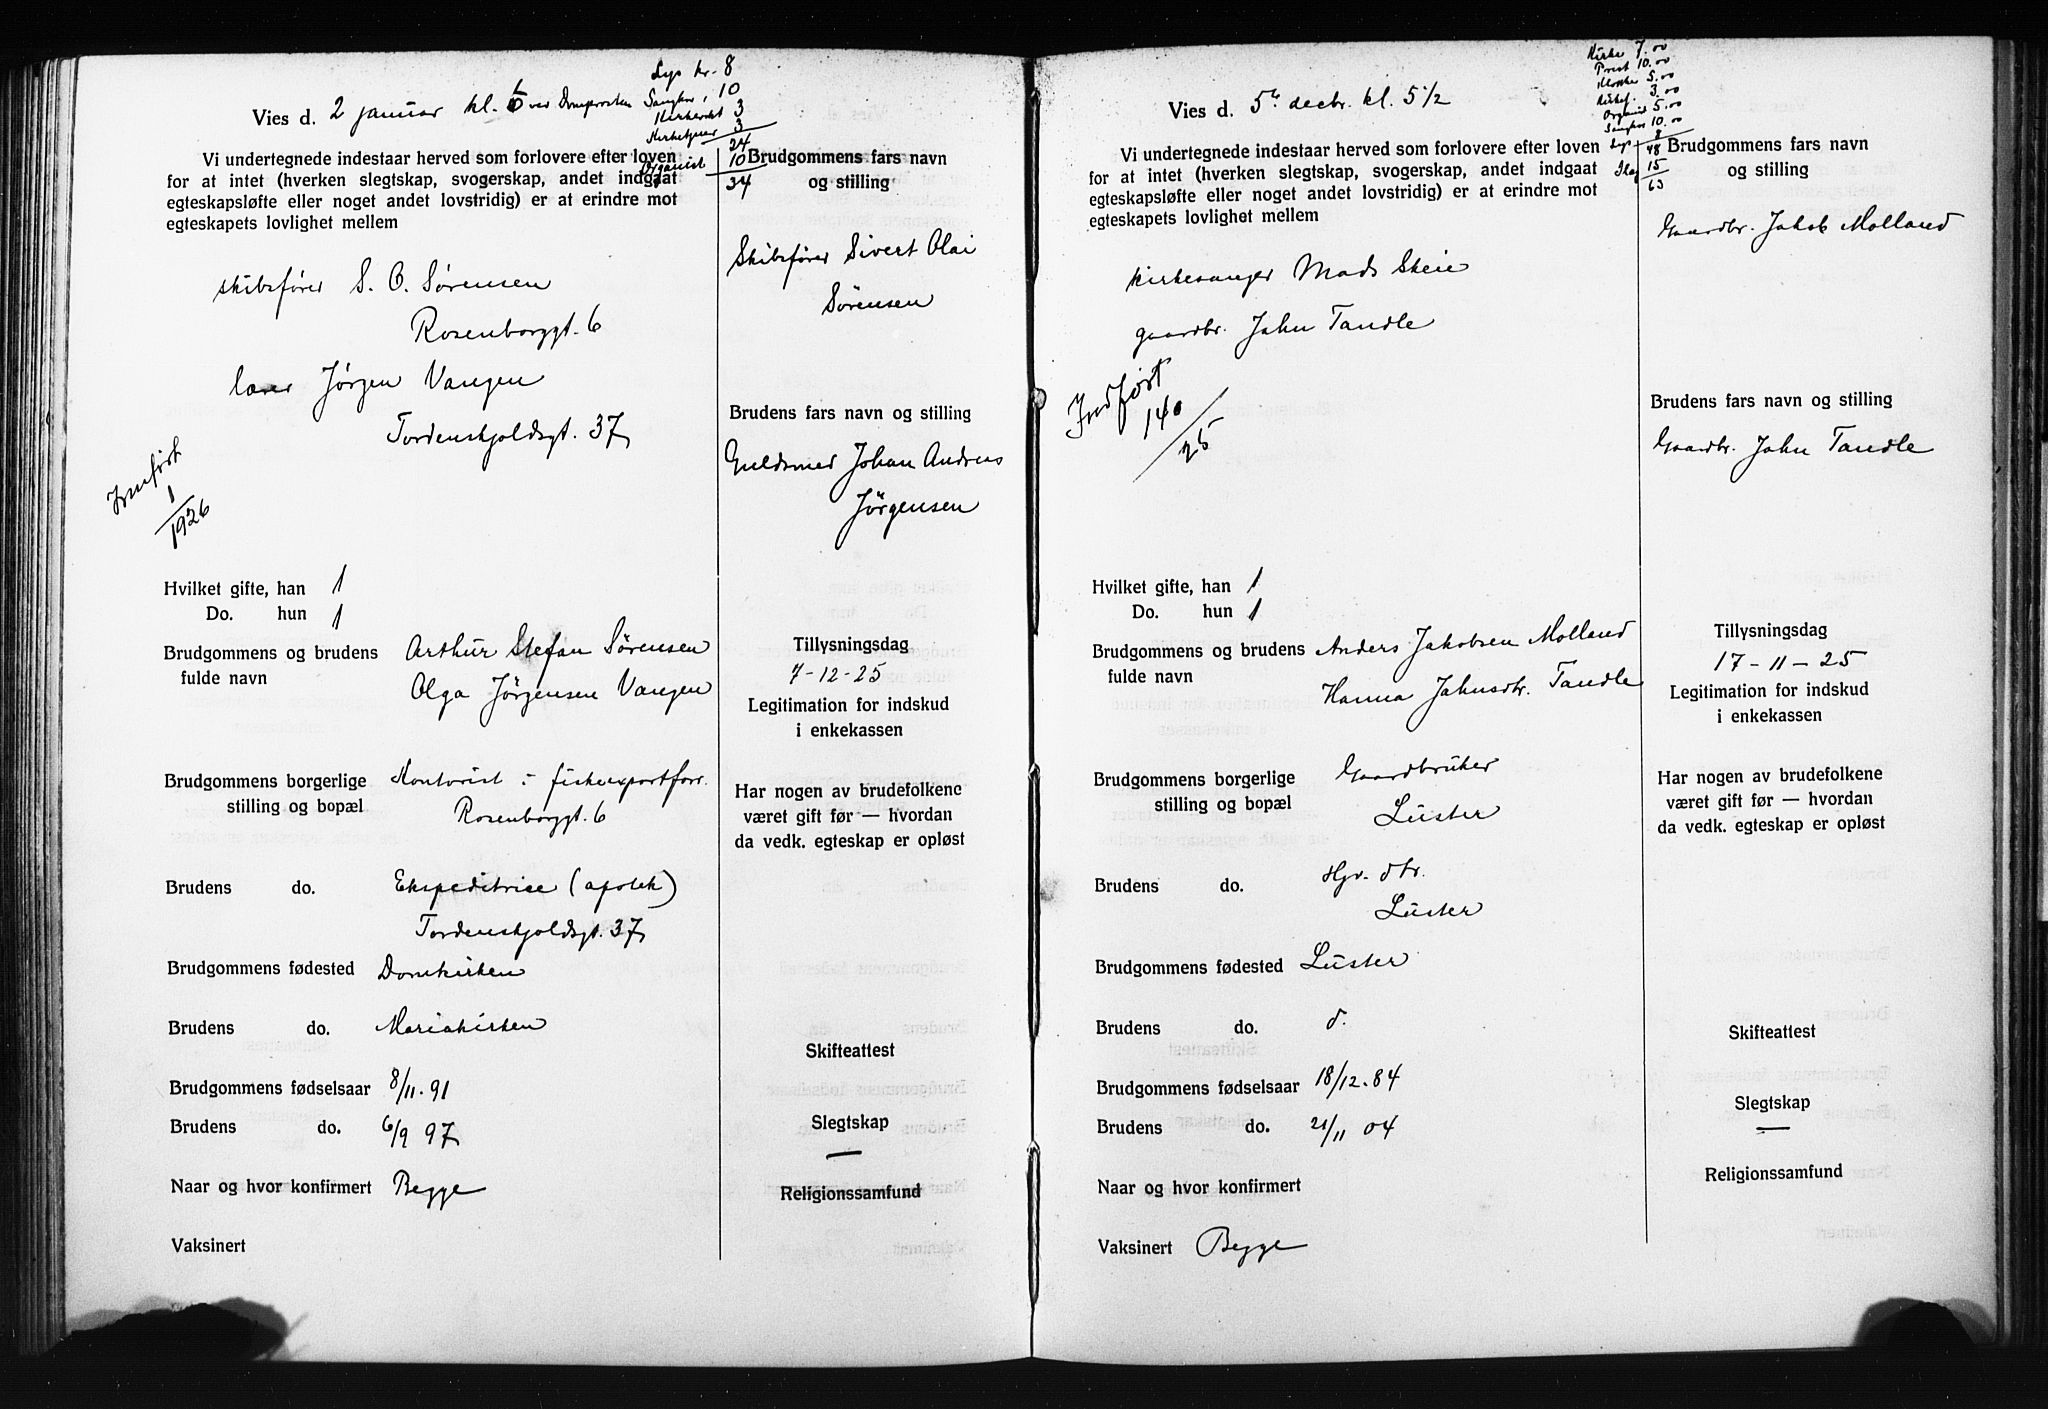 Lys kr. 8
Vies d. 2 januar kl. 6 ved Domprosten Sangkor, 10
Kirkeverk 3
Kirketjener 3
24
Organist 10
34
Vi undertegnede indestaar herved som forlovere efter loven
for at intet (hverken slegtskap, svogerskap, andet indgaat
egteskapsløfte eller noget andet lovstridig) er at erindre mot
egteskapets lovlighet mellem
skibsfører S. O. Sørensen
Rosenborggt. 6
lærer Jørgen Vangen
Tordenskjoldsgt. 37
Innført
1
1926
Hvilket gifte, han 1
Do. hun 1
Brudgommens og brudens Arthur Stefan Sørensen
fulde navn Olga Jørgensen Vangen
Brudgommens borgerlige Kontorist - fiskeexportforr.
stilling og bopæl Rosenborggt. 6
Brudens do. Ekspeditrise (apotek)
Tordenskjoldsgt. 37
Brudgommens fødested Domkirken
Brudens do. Mariakirken
Brudgommens fødselsaar 8/11. 91
Brudens do. 6/9 97
Naar og hvor konfirmert Begge
Vaksinert
Brudgommens fars navn
og stilling
Skibsfører Sivert Olai
Sørensen
Brudens fars navn og stilling
Guldsmed Johan Andreas
Jørgensen
Tillysningsdag
7-12-25
Legitimation for indskud
i enkekassen
Har nogen av brudefolkene
været gift før — hvordan
da vedk. egteskap er opløst
Skifteattest
Slegtskap
—
Religionssamfund
Kirke 7.00
Prest 10.00
Klokker 5.00
Kirket. 3.00
Organist 5.00
Sangkor 10.00
Lys 8
48
15
63
Vies d. 5te decbr. kl. 5 1/2
Vi undertegnede indestaar herved som forlovere efter loven
for at intet (hverken slegtskap, svogerskap, andet indgaat
egteskapsløfte eller noget andet lovstridig) er at erindre mot
egteskapets lovlighet mellem
Kirkesanger Mads Skeie
gaardbr. John Tandle
Indført
140
25
Hvilket gifte, han 1
Do. hun 1
Brudgommens og brudens Anders Jakobsen Molland
fulde navn Hanna Johnsdtr. Tandle
Brudgommens borgerlige Gaardbruker
stilling og bopæl Luster
Brudens do. Hgr. dtr.
Luster
Brudgommens fødested Luster
Brudens do. d.
Brudgommens fødselsaar 18/12.84
Brudens do. 21/11 04
Naar og hvor konfirmert
Vaksinert Begge
Brudgommens fars navn
og stilling
Gaardbr. Jakob Molland
Brudens fars navn og stilling
Gaardbr. John Tandle
Tillysningsdag
17-11-25
Legitimation for indskud
i enkekassen
Har nogen av brudefolkene
været gift før — hvordan
da vedk. egteskap er opløst
Skifteattest
Slegtskap
—
Religionssamfund